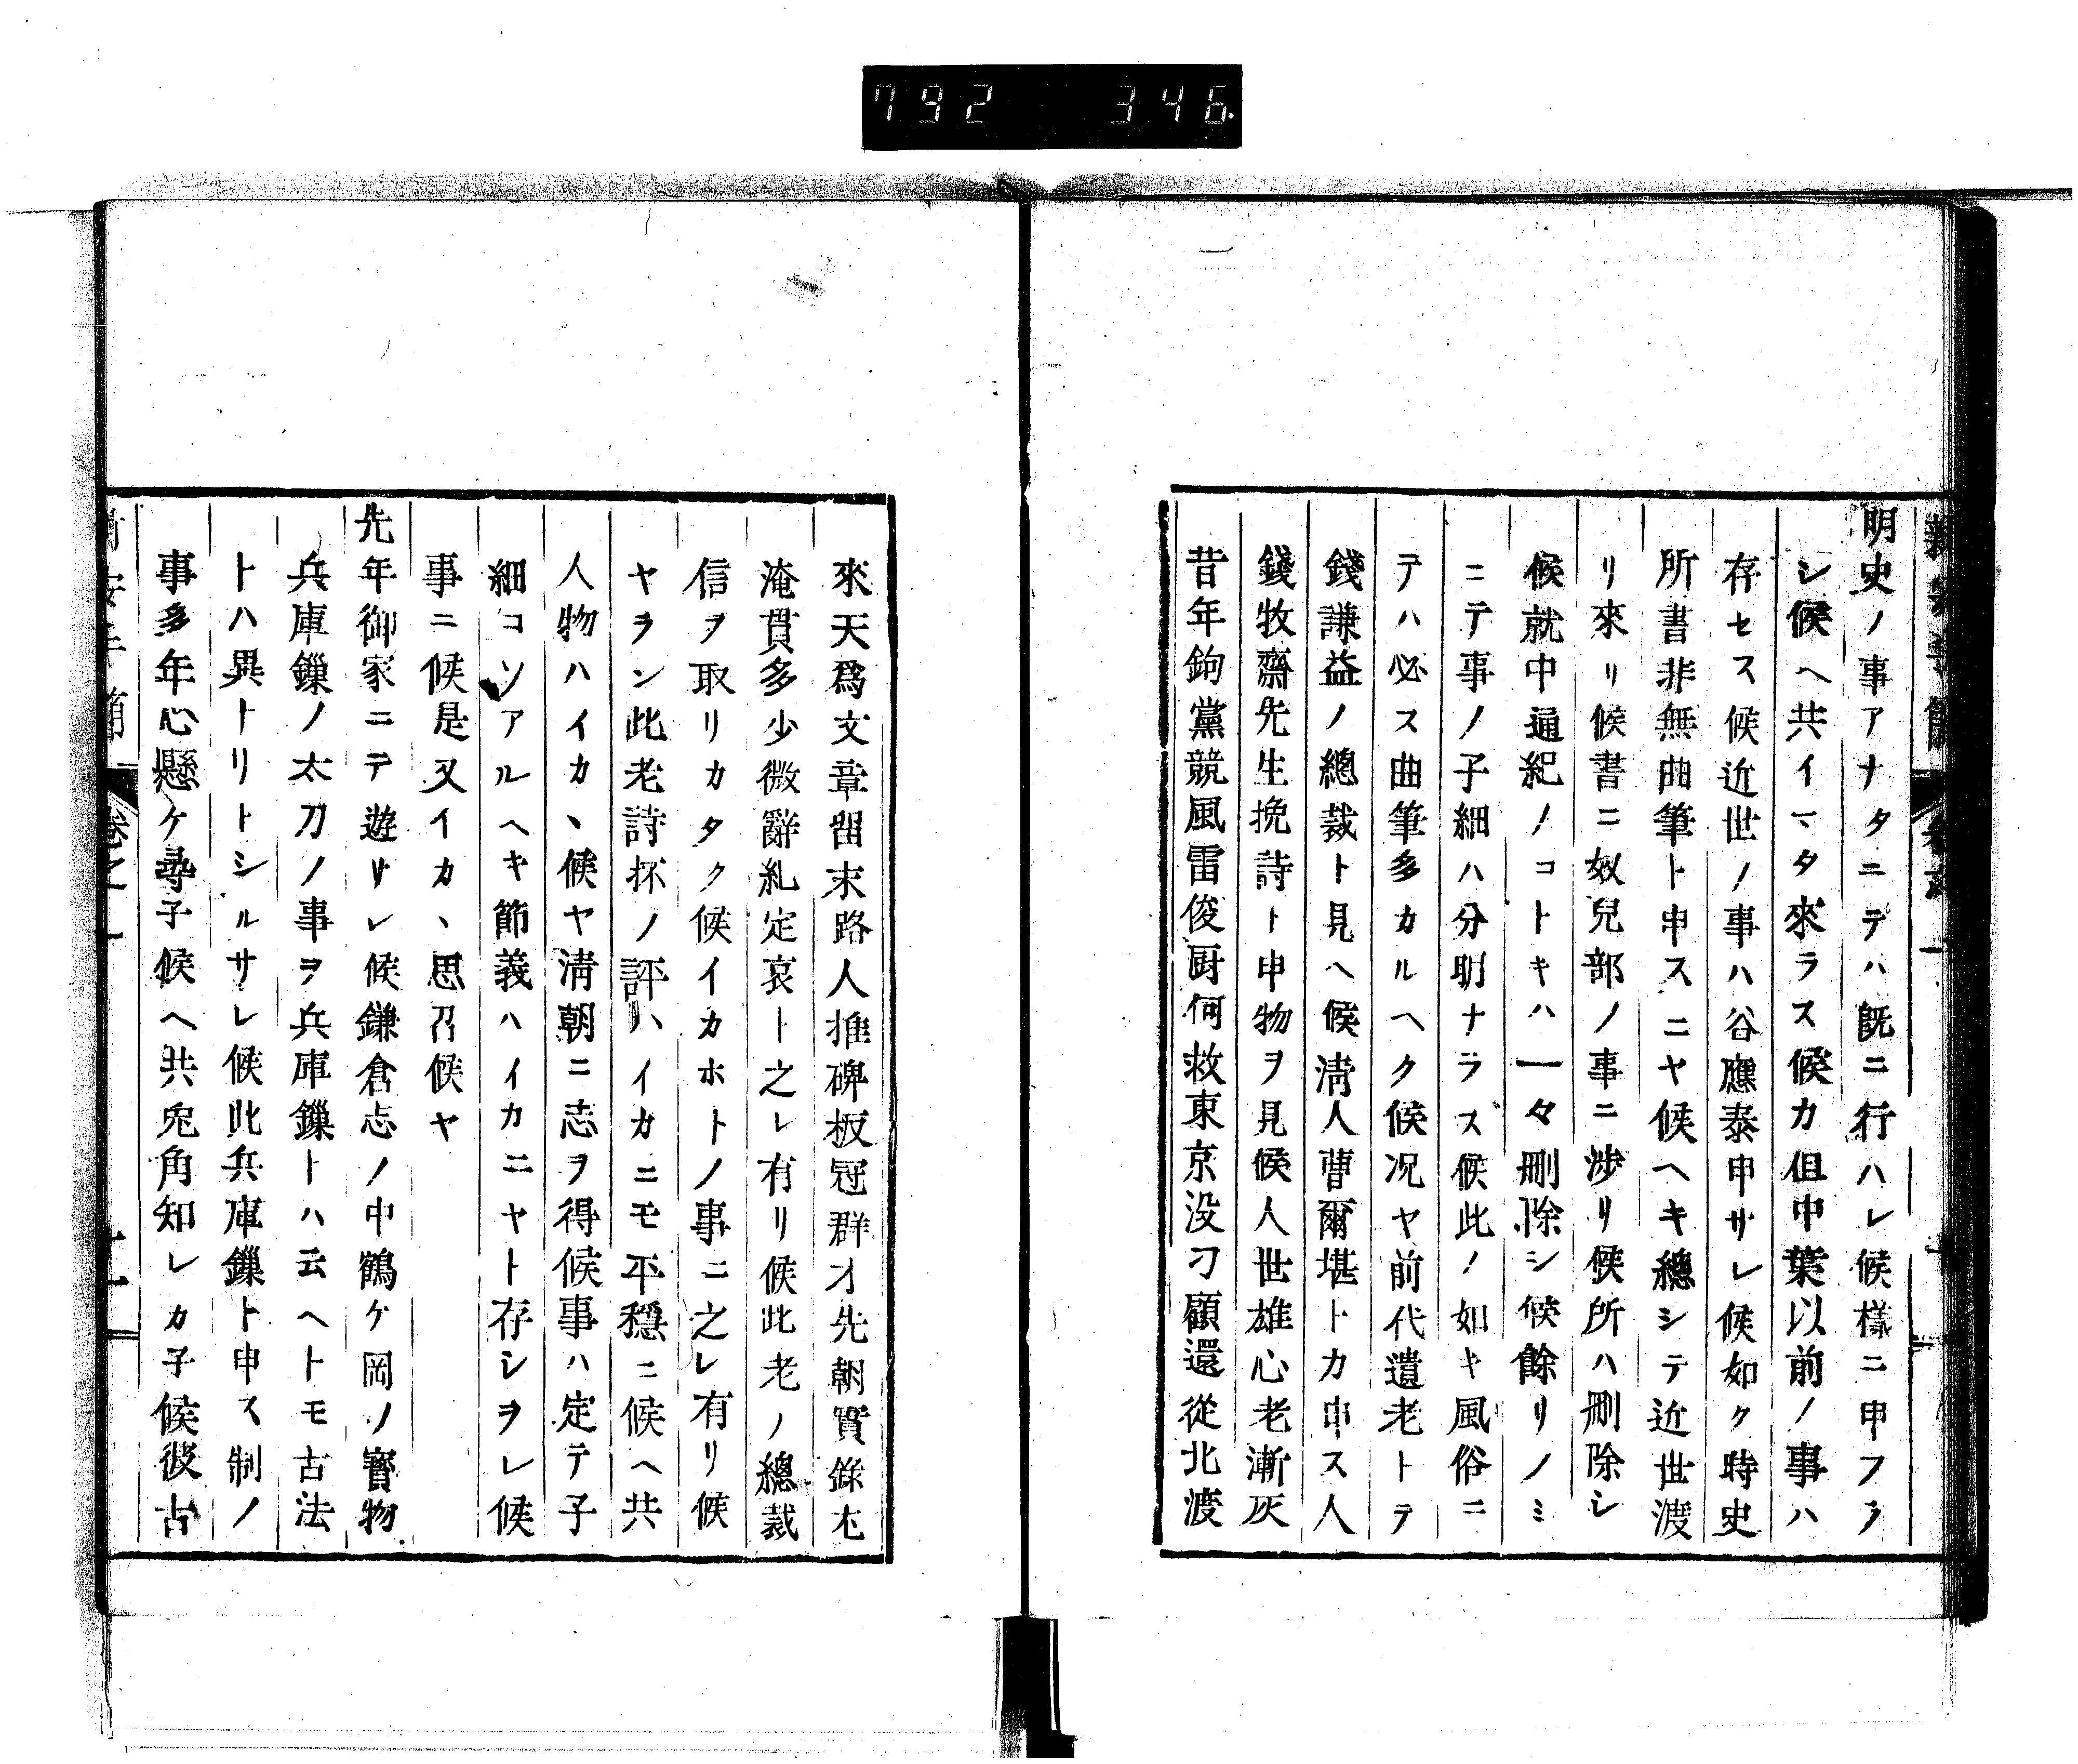 792 346
明史ノ事アナタニテハ既ニ行ハレ候樣ニ申フラ
シ候ヘ共イマタ來ラス候カ但中葉以前ノ事ハ
存セス候近世ノ事ハ谷應泰申サレ候如ク時史
所書非無曲筆ト申スニヤ候ヘキ總シテ近世渡
リ來リ候書ニ奴兒部ノ事ニ渉リ候所ハ刪除シ
候就中通紀ノコトキハ一々刪除シ候餘リノミ
ニテ事ノ子細ハ分明ナラス候此ノ如キ風俗ニ
テハ必ス曲筆多カルヘク候况ヤ前代遺老トテ
錢謙益ノ總裁ト見ヘ候淸人曹爾堪トカ申ス人
錢牧齋先生挽詩ト申物ヲ見候人世雄心老漸灰
昔年鉤黨競風雷俊厨何救東京没刀顧還從北渡
來天爲文章留末路人推碑板冠群才先朝實錄尢
淹貫多少微辭糺定哀ト之レ有リ候此老ノ總裁
信ヲ取リカタク候イカホトノ事ニ之レ有リ候
ヤラン此老詩抔ノ評ハイカニモ平穩ニ候ヘ共
人物ハイカヽ候ヤ淸朝ニ志ヲ得候事ハ定テ子
細コソアルヘキ節義ハイカニヤト存シヲレ候
事ニ候是又イカヽ思召候ヤ
先年御家ニテ遊サレ候鎌倉志ノ中鶴ケ岡ノ寳物
兵庫鏁ノ太刀ノ事ヲ兵庫鏁トハ云ヘトモ古法
トハ異トリトシルサレ候此兵庫鏁ト申ス制ノ
事多年心懸ケ尋子候ヘ共兎角知レカ子候彼古
卷之一